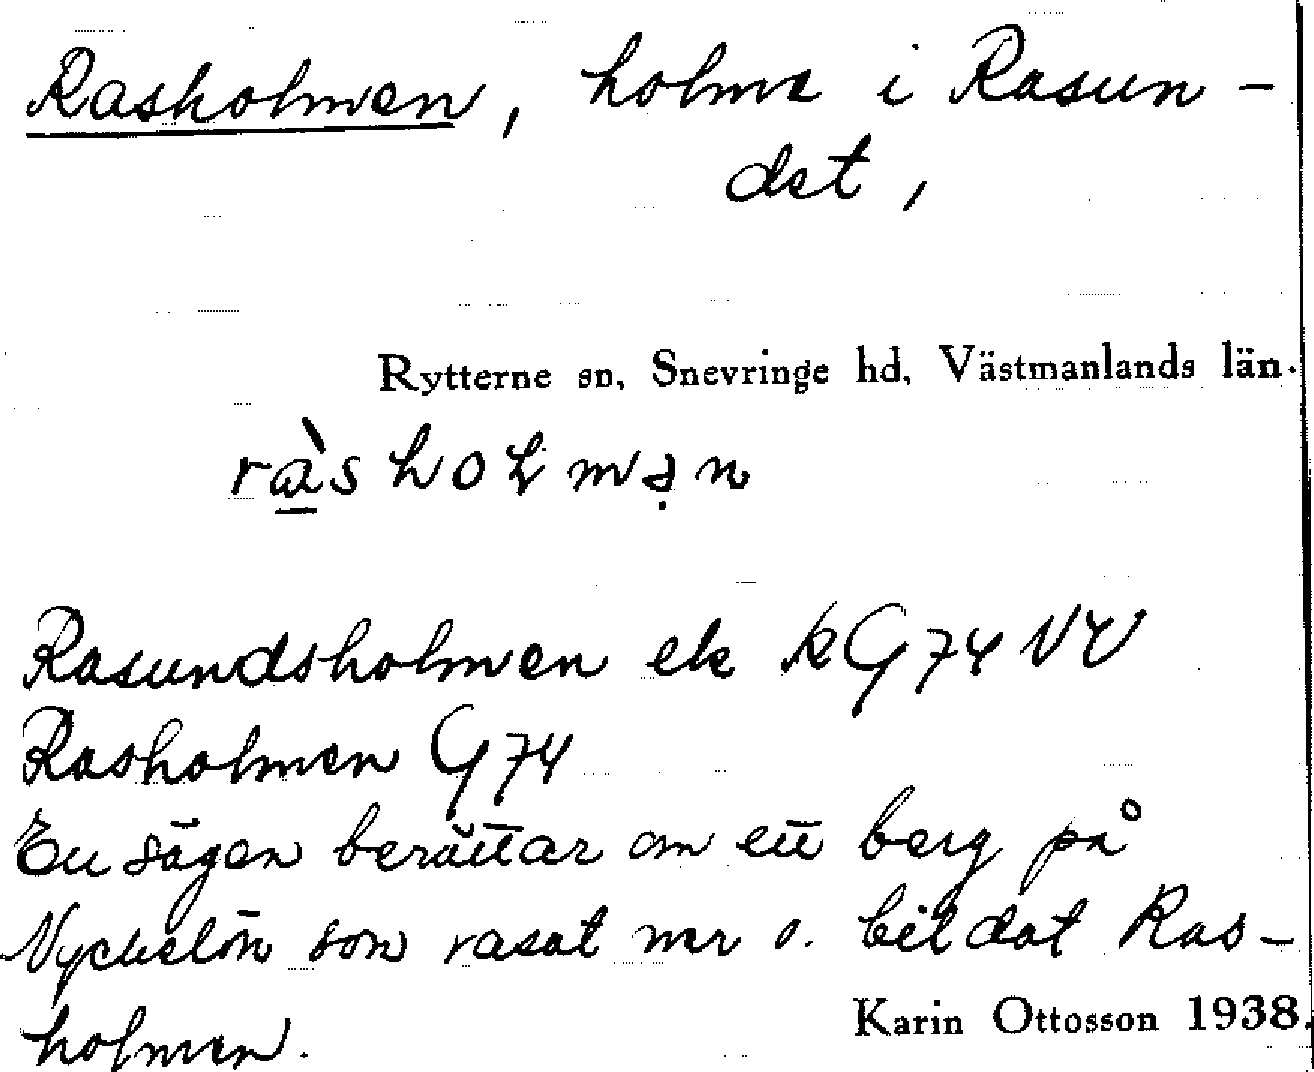 Rasholmen, holme i Rasun-
det,
Rytterne sn, Snevringe hd, Västmanlands län.
Rasundsholmen ek kG74 NV
Rasholmen G74
En sägen berättar om ett berg på
Nyckelön som rasat ner o. bildat Ras-
holmen.
Karin Ottosson 1938.